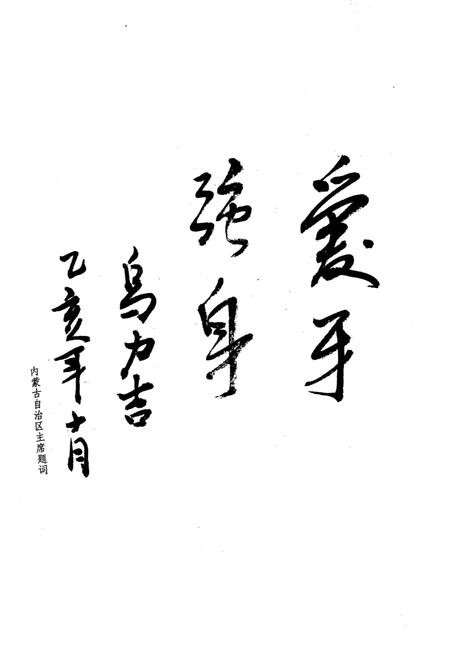 愛牙
強身
烏力吉
乙亥年十月
内蒙古自治区主席题词